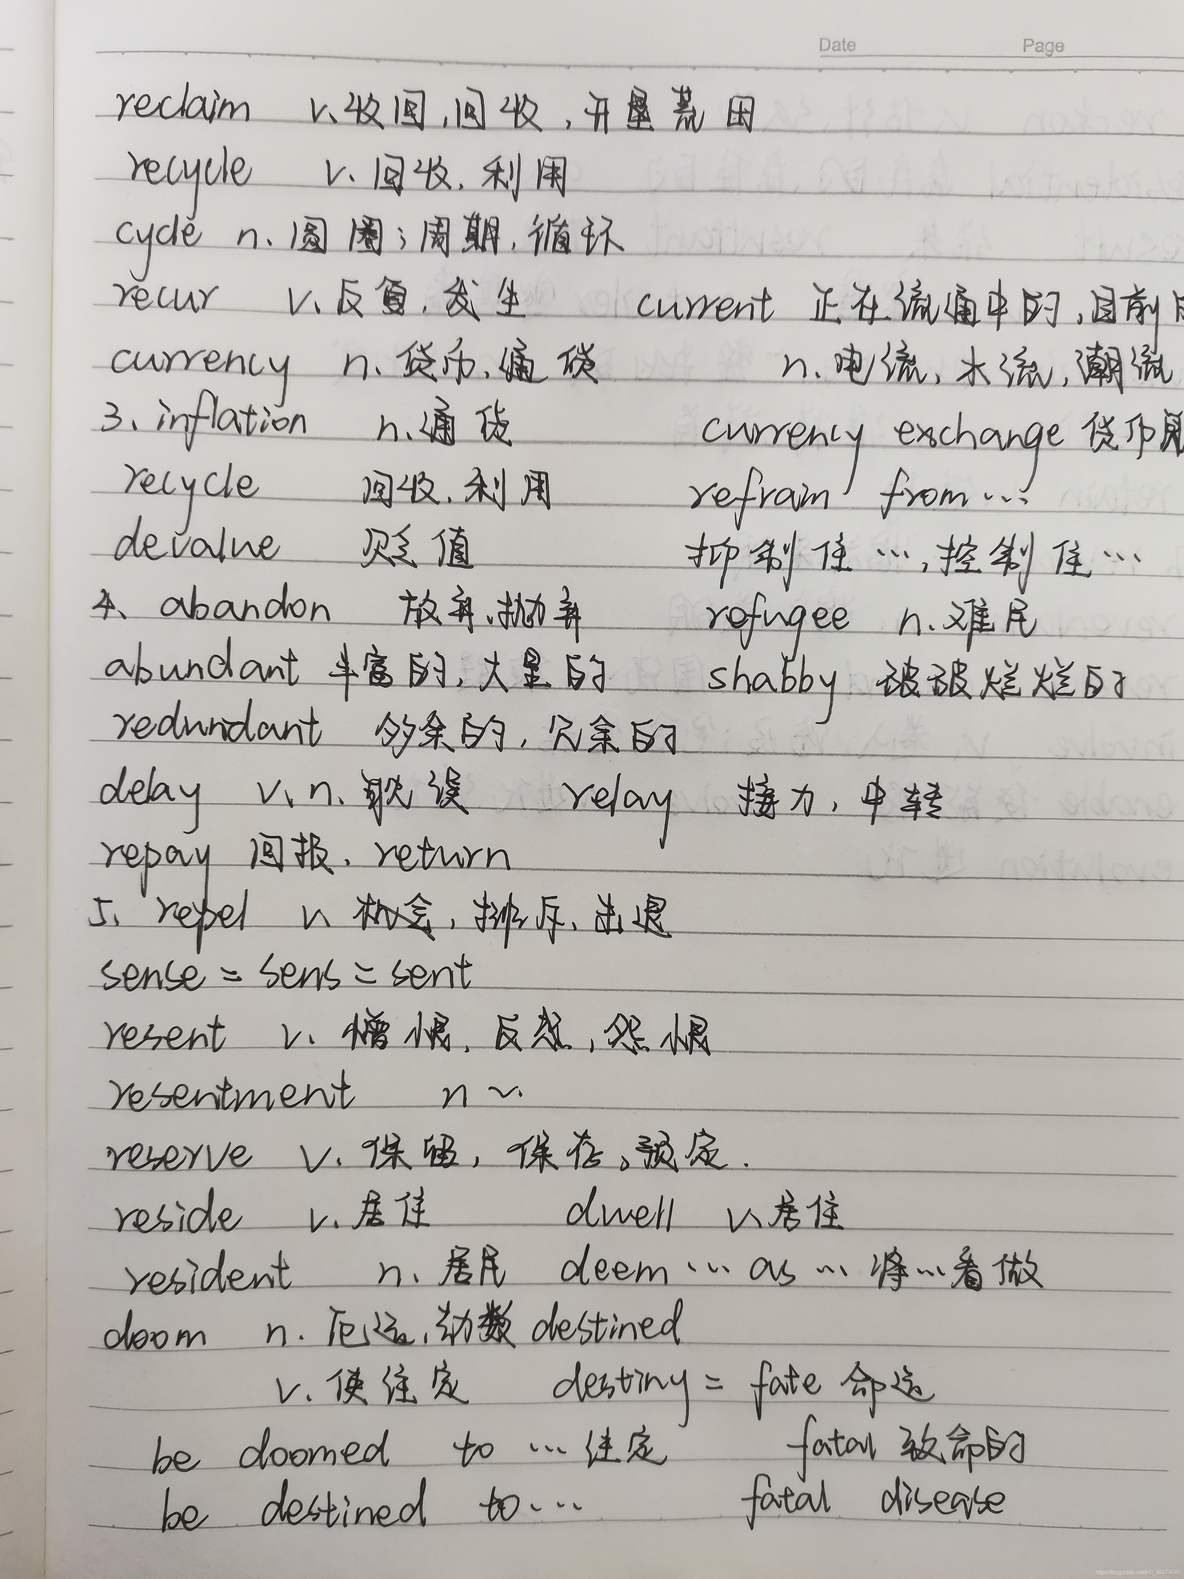 Date Page
reclaim v.收回,回收,开垦荒田
recycle v.回收.利用
cycle n.圆圈;周期,循环
recur v.反复,发生 current 正在流通中的,目前
currency n.货币,通货 n.电流,水流,潮流
3. inflation n.通货 currency exchange 货币
recycle 回收.利用 refrain from…
devalue 贬值 抑制住…,控制住…
4、abandon 放弃、抛弃 refugee n.难民
abundant 丰富的,大量的 shabby 破破烂烂的
redundant 多余的,冗余的
delay v.n.耽误 relay 接力,中转
repay 回报. return
5. repel v. 机会,排斥,击退
sense = sens = sent
resent v. 憎恨,反感,怨恨
resentment n ~.
reserve v.保留,保存,预定.
reside v.居住 dwell v.居住
resident n.居民 deem … as … 将…看做
doom n.厄运,劫数 destined
v.使注定 destiny = fate 命运
be doomed to … 注定 fatal 致命的
be destined to… fatal disease